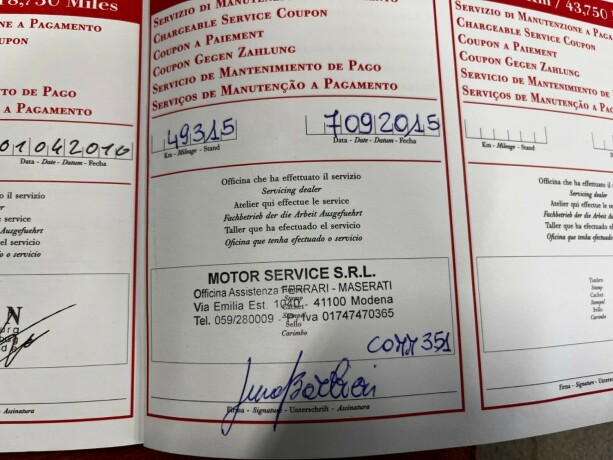 18,750 Miles
NE A PAGAMENTO
OUPON
O
G
TO DE PAGO
A PAGAMENTO
01042010
Data - Date - Datum - Fecha
o il servizio
ler
e service
Ausgefuehrt
el servicio
o o servicio
N
- Assinatura
SERVIZIO DI MANUTENZIONE A PAGAMENTO
CHARGEABLE SERVICE COUPON
COUPON A PAIEMENT
COUPON GEGEN ZAHLUNG
SERVICIO DE MANTENIMIENTO DE PAGO
SERVIÇOS DE MANUTENÇÃO A PAGAMENTO
49315
7092015
Km - Mileage - Stand
Data - Date - Datum - Fecha
Officina che ha effettuato il servizio
Servicing dealer
Atelier qui effectue le service
Fachbetrieb der die Arbeit Ausgefuehrt
Taller que ha efectuado el servicio
Oficina que tenha efectuado o servicio
MOTOR SERVICE S.R.L.
Officina Assistenza FERRARI - MASERATI
Via Emilia Est. 1040 - 41100 Modena
Tel. 059/280009 - P. Iva 01747470365
Stamp
Sello
Carimbo
COMM 351
Firma - Signature - Unterschrift - Assinatura
Km / 43,750
SERVIZIO DI MANUTENZIONE A PAGA
CHARGEABLE SERVICE COUPON
COUPON A PAIEMENT
COUPON GEGEN ZAHLUNG
SERVICIO DE MANTENIMIENTO DE
SERVIÇOS DE MANUTENÇÃO A PA
Km - Mileage - Stand
Data
Officina che ha effettuato il
Servicing dealer
Atelier qui effectue le
Fachbetrieb der die Arbeit
Taller que ha efectuado
Oficina que tenha efectua
Timbro
Stamp
Cachet
Stempel
Sello
Carimbo
Firma - Signature - Unters